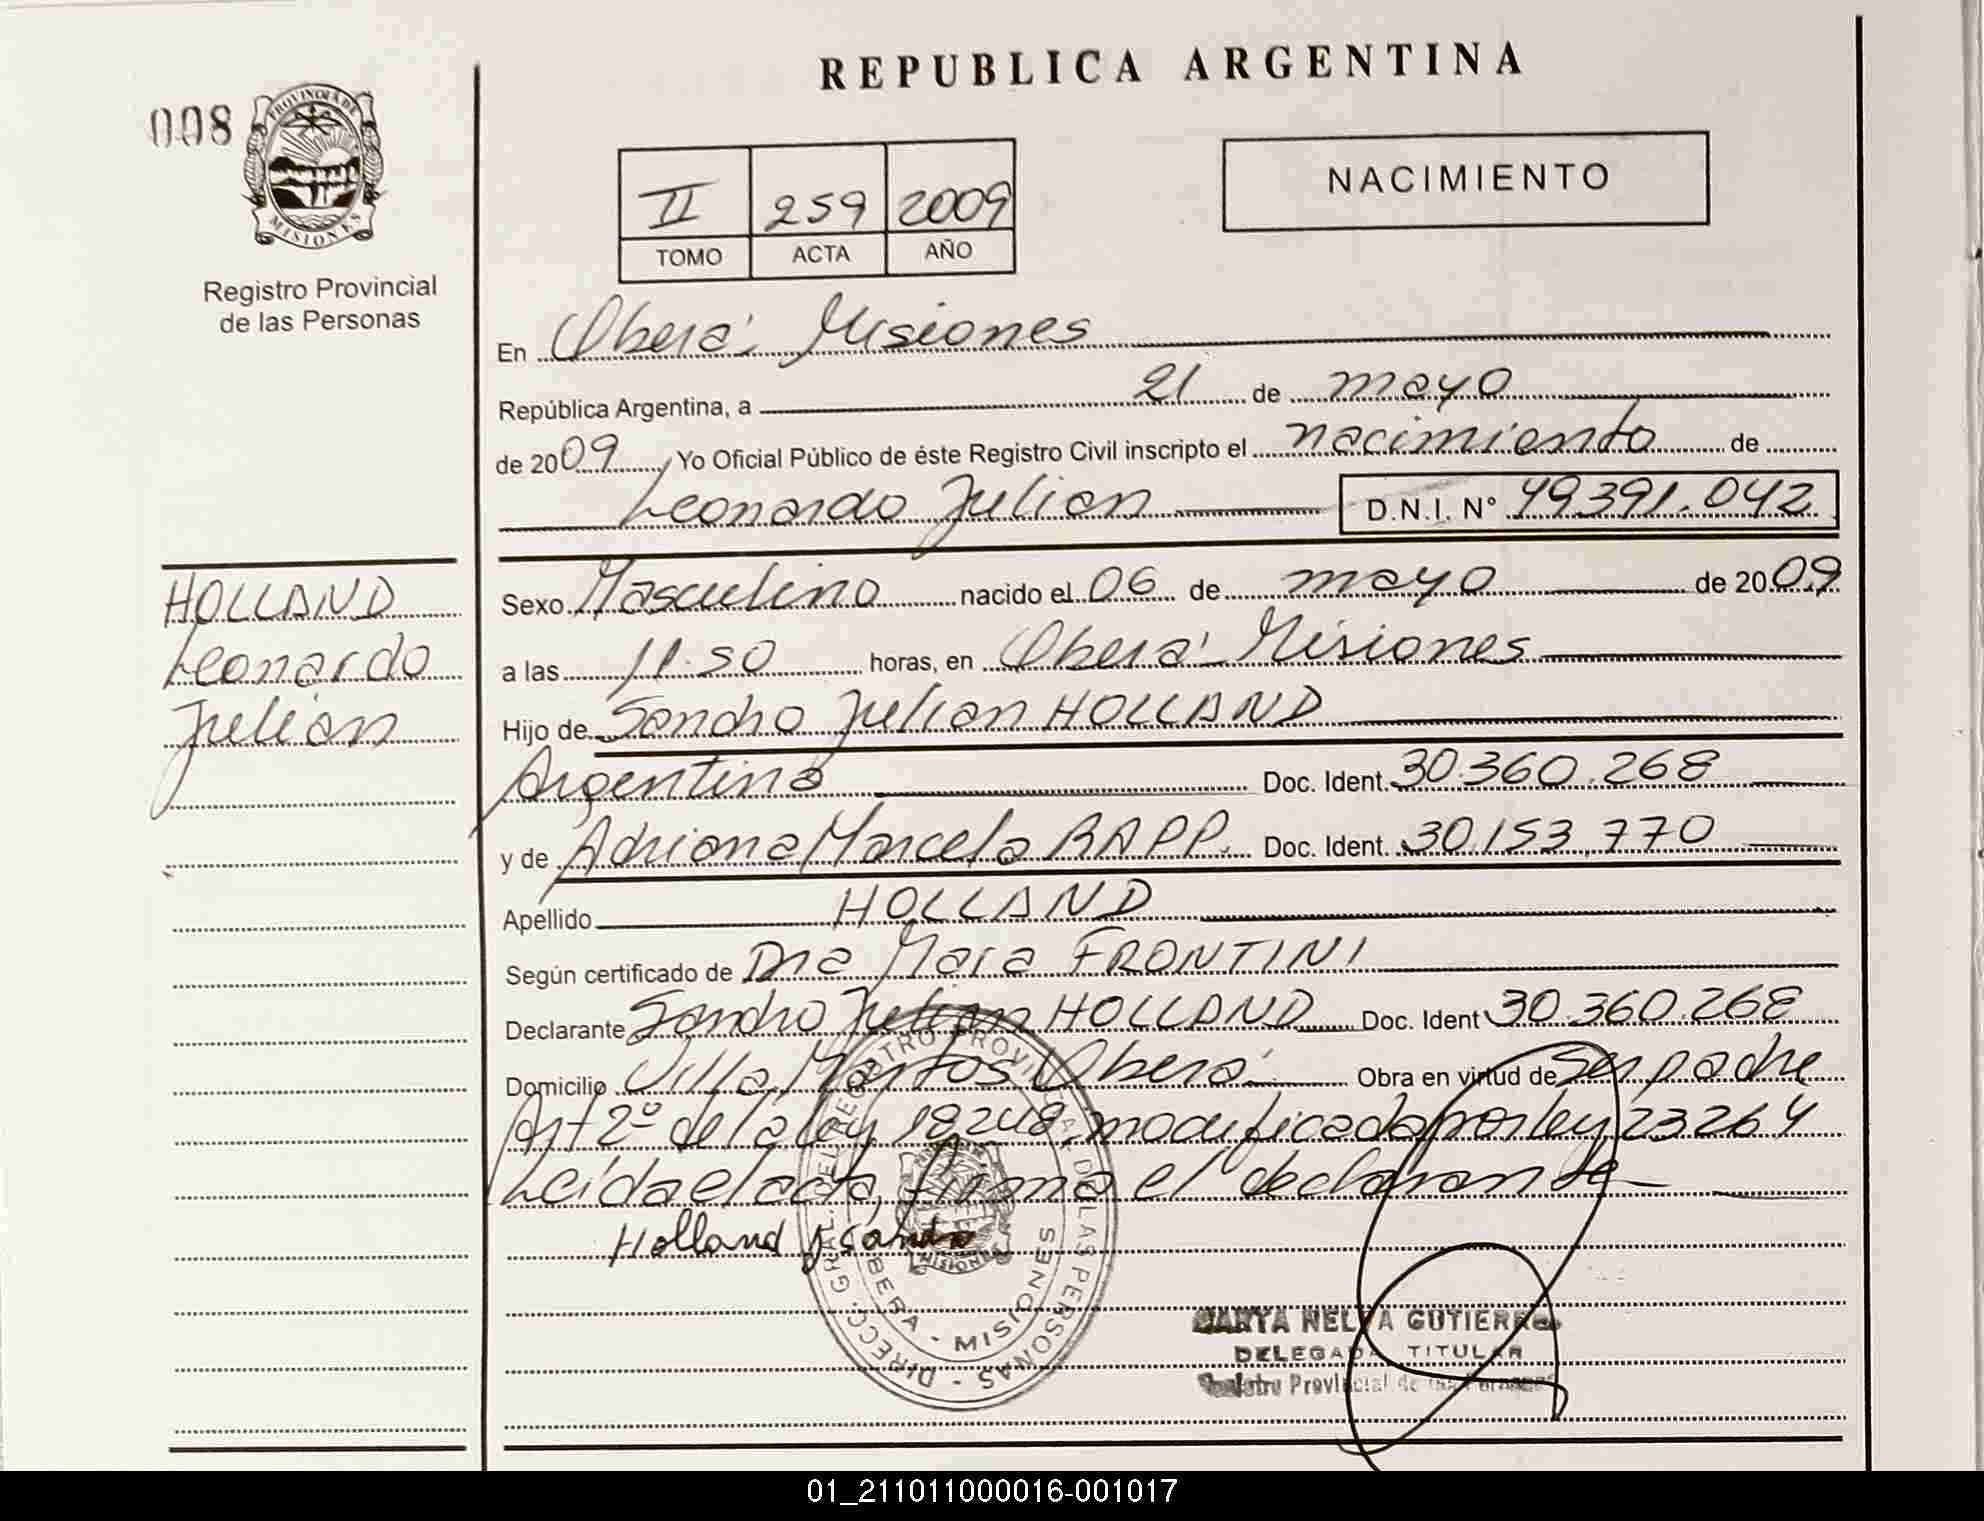 REPUBLICA ARGENTINA
008
PROVINCIA DE
MISIONES
Registro Provincial
de las Personas
II 259 2009
TOMO ACTA AÑO
NACIMIENTO
En Oberá Misiones
República Argentina, a 21 de mayo
de 2009 Yo Oficial Público de éste Registro Civil inscripto el nacimiento de
Leonardo Julian D.N.I. Nº 49.391.042
HOLLAND
Leonardo
Julian
Sexo Masculino nacido el 06 de mayo de 2009
a las 11.50 horas, en Oberá Misiones
Hijo de Sandro Julian HOLLAND
Argentino Doc. Ident. 30.360.268
y de Adriana Marcela RAPP. Doc. Ident. 30.153.770
Apellido HOLLAND
Según certificado de Dra Mara FRONTINI
Declarante Sandro Julian HOLLAND Doc. Ident 30.360.268
Domicilio Villa Martos Oberá Obra en virtud de ser padre
Art 2º de la ley 18248 modificada por ley 23264
Leída el acta, firma el declarante
Holland J Sandro
DIRECC. GRAL. DEL REGISTRO PROVINCIAL DE LAS PERSONAS
OBERA - MISIONES
MISIONES
NELVA GUTIERREZ
DELEGADA TITULAR
Registro Provincial de las Personas
01_211011000016-001017